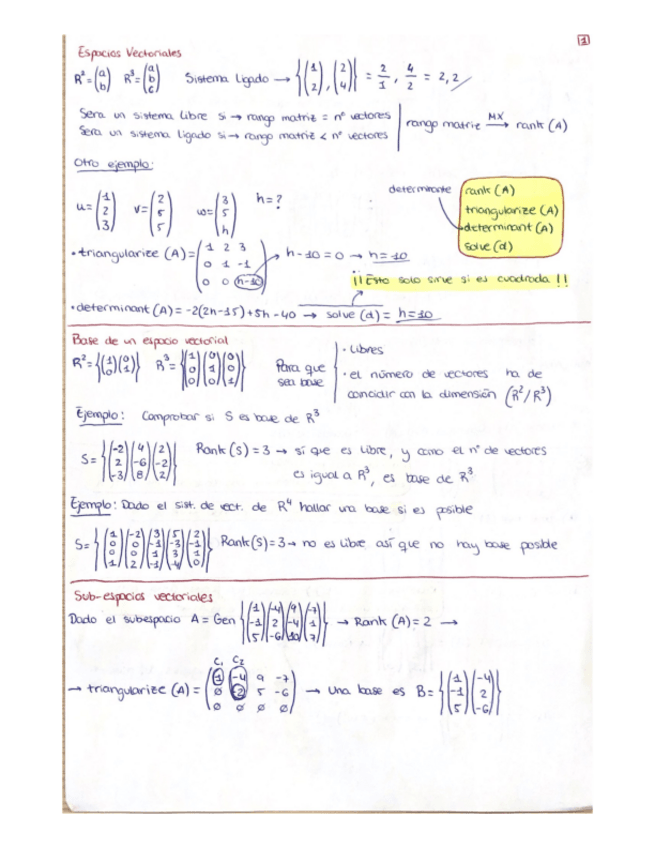 1
Espacios Vectoriales
R² = (a b) R³ = (a b c) Sistema Ligado → {(1 2), (2 4)} = 2/1, 4/2 = 2, 2
Sera un sistema Libre si → rango matriz = nº vectores
Sera un sistema Ligado si → rango matriz < nº vectores
rango matriz MX→ rank (A)
Otro ejemplo:
u = (1 2 3) v = (2 5 5) w = (3 5 h) h = ?
determinante
rank (A)
triangularize (A)
determinant (A)
solve (d)
• triangularize (A) = (1 2 3 0 1 -1 0 0 h-10) → h - 10 = 0 → h = 10
¡¡Esto solo sirve si es cuadrada !!
• determinant (A) = -2(2h-15)+5h-40 → solve (d) = h=10
Base de un espacio vectorial
R² = {(1 0)(0 1)} R³ = {(1 0 0)(0 1 0)(0 0 1)} Para que sea base
• Libres
• el número de vectores ha de
coincidir con la dimensión (R²/R³)
Ejemplo: Comprobar si S es base de R³
S = {(-2 2 -3)(4 -6 8)(2 -2 2)} Rank (S) = 3 → sí que es libre, y como el nº de vectores
es igual a R³, es base de R³
Ejemplo: Dado el sist. de vect. de R⁴ hallar una base si es posible
S = {(1 0 0 1)(-2 0 0 2)(3 -1 1 -1)(5 -3 3 -4)(2 -1 1 0)} Rank (S) = 3 → no es libre así que no hay base posible
Sub-espacios vectoriales
Dado el subespacio A = Gen {(1 -1 5)(-4 2 -6)(9 -4 10)(-7 1 7)} → Rank (A) = 2 →
C₁ C₂
→ triangularize (A) = (1 -4 9 -7 0 2 5 -6 0 0 0 0) → una base es B = {(1 -1 5)(-4 2 -6)}